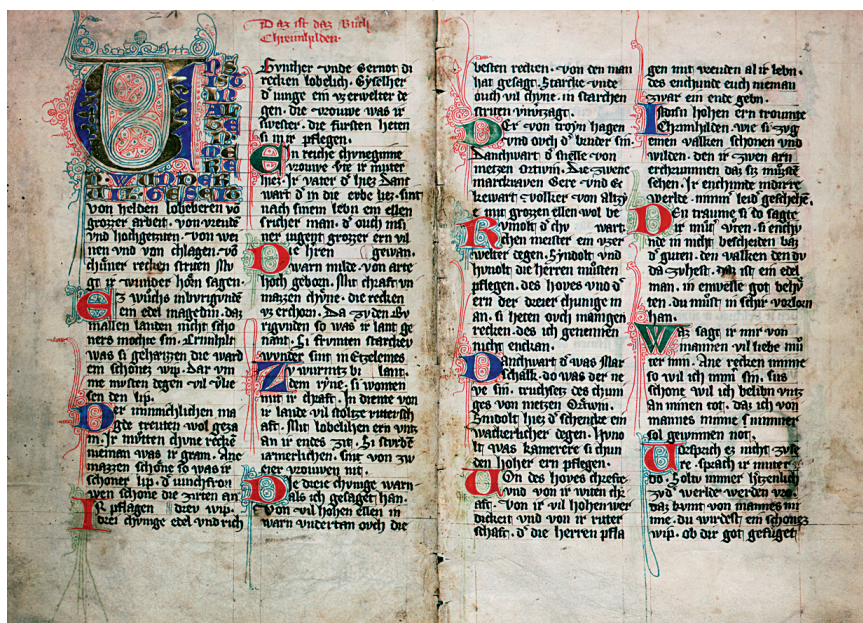 Daz ist daz Buch
Chreimhilden.
UNS
IST
IN
AL
TEN
MERE
N. WUNDER
VIL. GESEIT
von helden lobeberen vō
grozzer arbeit. von vreude
vnd hochgeziten. von wei
nen vnd von chlagen. vō
chuner recken striten mv
ge ir wunder horn sagen.
Ez wuchs in burgvnde
ein edel magedin. daz
in allen landen nicht scho
ners mochte sin. Crimhilt
was si geheizzen die ward
ein schonez wip. dar vm
me musten degen vil vlie
sen den lip.
Der minnichlichen ma
gde treuten wol geza
m. Ir mutten chvne recken
nieman was ir gram. Ane
mazzen schone so was ir
schoner lip. d iunchfrow
wen schone die zirten an
Ir pflagen drev wip.
drei chvnige edel vnd rich
Gvnther vnde Gernot di
recken lobelich. Gyselher
d iunge ein vz erwelter de
gen. die vrouwe was ir
swester. die fursten heten
si in ir pflegen.
Ein reiche chvneginne
vrouwe Vte ir muter
hiez. Ir vater d hiez Dant
wart d in die erbe liez. sint
nach sinem lebn ein ellen
tricher man. d ouch in si
ner iugent grozzer ern vil
Die hren gewan.
warn milde. von arte
hoch geborn. Mit chraft vn
mazen chvne. die recken
vz erchorn. Da zv den Bv
rigvnden so was ir lant ge
nant. Si frvmten starchev
wunder sint in Etzelenes
Zv wurmtz bi lant.
dem ryne. si wonten
mit ir chraft. In diente von
ir lande vil stoltze rittersch
aft. Mit lobelichen ern vntz
an ir endes zit. Si sturbē
iæmerlichen. sint von zw
eier vrouwen nit.
Die dreie chvnige warn
als ich gesaget han.
von vil hohen ellen in
warn vndertan ovch die
besten recken. von den man
hat gesagt. Starcke vnde
ouch vil chvne. in starchen
striten vnvtzagt.
Der von troyn hagen
vnd ovch d bruder sin.
Danchwart d snelle von
metzen ortwin. Die zwene
marckraven Gere vnd Ge
kewart volker von altzy
e mit grozen ellen wol be
Rvmolt d chv wart.
chen meister ein vzer
welter degen. Sindolt vnd
hvnolt die herren musten
pflegen. des hoves vnd d
ern der dreier chunige in
an. si heten ovch manigen
recken. des ich genennen
nicht enckan.
Danchwart d was Mar
schalk. do was der ne
ve sin. truchsetz des chun
ges von metzen Ortwin.
Sindolt hiez d schencke ein
wætlicher degen. Hvno
lt was kamerere si chun
den hoher ern pflegen.
Von des hoves chrefte
vnd von ir witen chr
aft. von ir vil hohen wer
dickeit vnd von ir ritter
schaft. d die herren pfla
gen mit vreuden al ir lebn.
des enchunde euch nieman
zwar ein ende gebn.
In disin hohen ern troumte
Chrimhilden wie si zvg
einen valken schonen vnd
wilden. den ir zwen arn
erchrummen daz siz muste
sehen. Ir enchunde in dirre
werlde. nimm leid geschehē.
Den traume si do sagte
Ir muter vten. si enchv
nde in nicht bescheiden baz
d guten. den valken den dv
da zvhest. daz ist ein edel
man. in enwelle got behv
ten. du must in schir vorlorn
han.
Waz sagt ir mir von
mannen vil liebe mu
ter min. Ane recken minne
so wil ich imm sin. sus
schone wil ich belibn vntz
an minen tot. daz ich von
mannes minne s nimmer
sol gewinnen not.
Vursprich ez nicht zv se
re. sprach ir muter
do. Soltu immer hertzenlich
zv d werlde werden vro
daz kvmt von mannes mi
nne. du wurdest ein schonez
wip. ob dir got gefuget